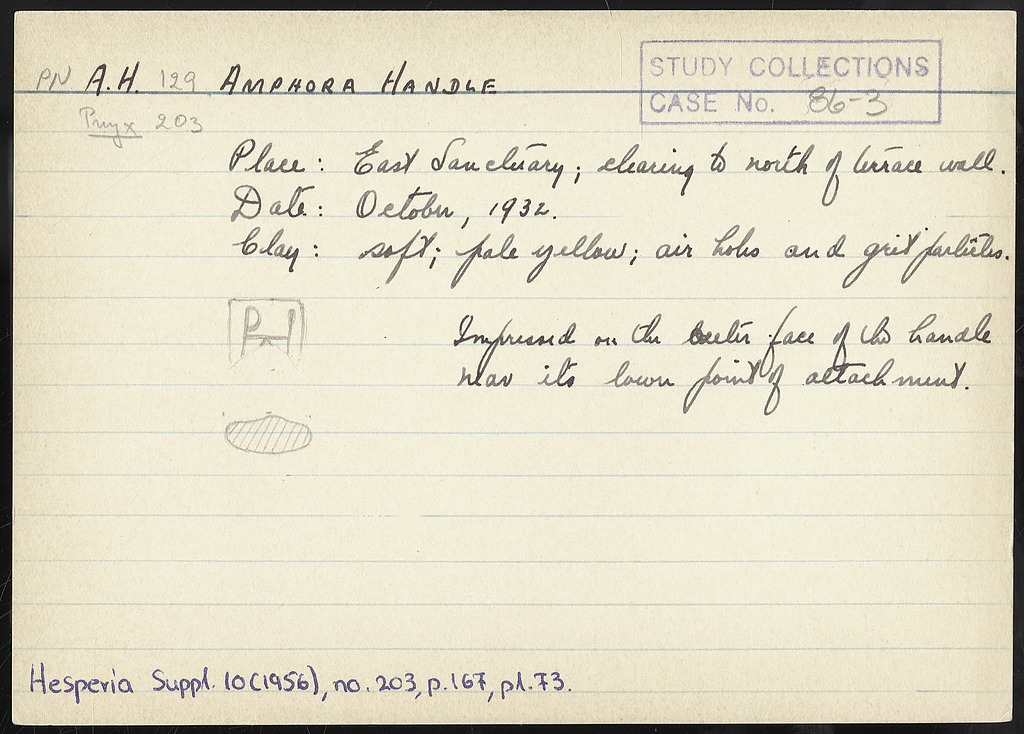 PN A.H. 129 AMPHORA HANDLE
STUDY COLLECTIONS
CASE No. 86-3
Pnyx 203
Place: East Sanctuary; clearing to north of terrace wall.
Date: October, 1932.
Clay: soft; pale yellow; air holes and grit particles.
Impressed on the outer face of the handle
near its lower point of attachment.
Hesperia Suppl. 10 (1956), no. 203, p. 167, pl. 73.